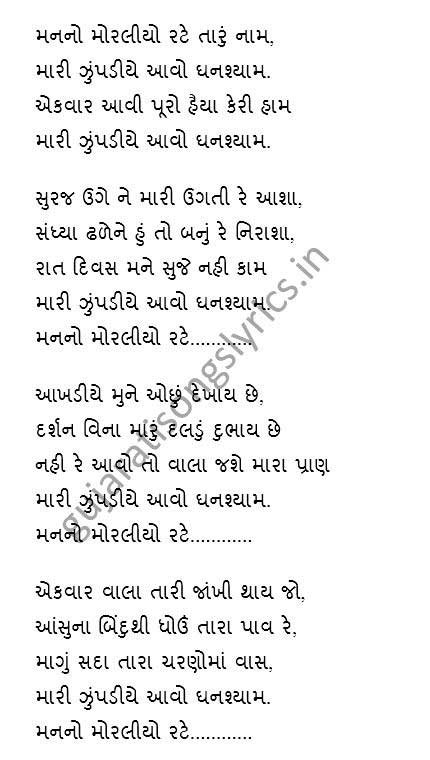 મનનો મોરલીયો રટે તારું નામ,
મારી ઝુંપડીયે આવો ઘનશ્યામ.
એકવાર આવી પૂરો હૈયા કેરી હામ
મારી ઝુંપડીયે આવો ઘનશ્યામ.
સુરજ ઉગે ને મારી ઉગતી રે આશા,
સંધ્યા ઢળેને હું તો બનું રે નિરાશા,
રાત દિવસ મને સુજે નહી કામ
મારી ઝુંપડીયે આવો ઘનશ્યામ.
મનનો મોરલીયો રટે............
આખડીયે મુને ઓછું દેખાય છે,
દર્શન વિના મારું દલડું દુભાય છે
નહી રે આવો તો વાલા જશે મારા પ્રાણ
મારી ઝુંપડીયે આવો ઘનશ્યામ.
મનનો મોરલીયો રટે............
એકવાર વાલા તારી જાંખી થાય જો,
આંસુના બિંદુથી ધોઉં તારા પાવ રે,
માગું સદા તારા ચરણોમાં વાસ,
મારી ઝુંપડીયે આવો ઘનશ્યામ.
મનનો મોરલીયો રટે............
gujaratisongslyrics.in